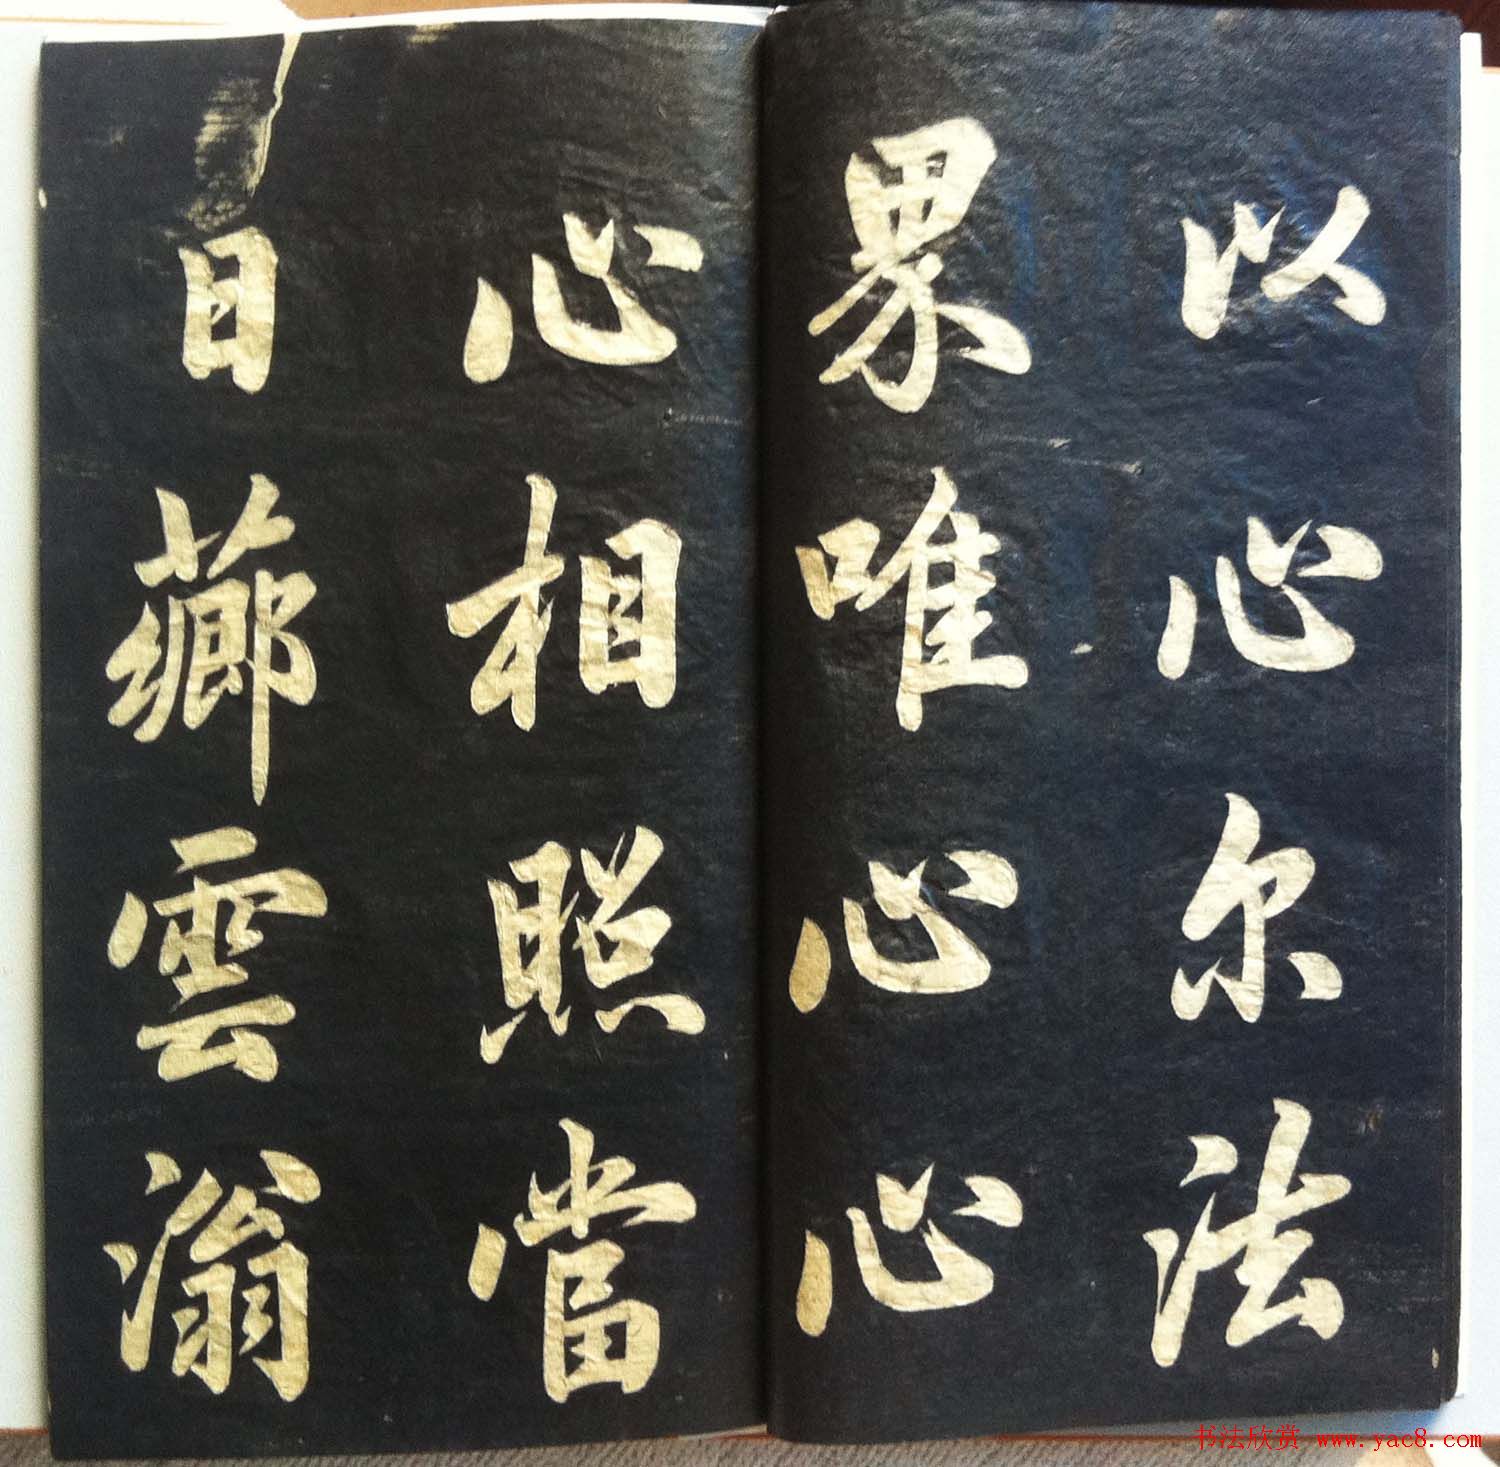 以心尔法
界唯心心
心相照當
目薌雲滃
书法欣赏 www.yac8.com